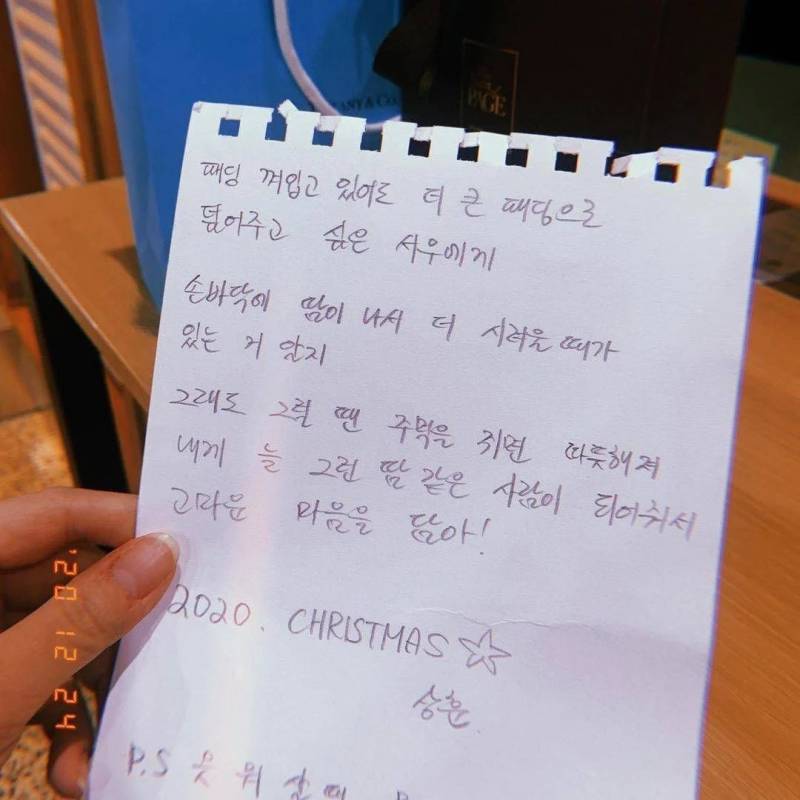 TIFFANY & CO.
PAGE
패딩 껴입고 있어도 더 큰 패딩으로
덮어주고 싶은 사우에게
손바닥에 땀이 나서 더 시려울 때가
있는 거 알지
그래도 그럴 땐 주먹을 쥐면 따뜻해져
내게 늘 그런 땀 같은 사람이 되어줘서
고마운 마음을 담아!
2020. CHRISTMAS
상훈
P.S 옷
'20 12 24